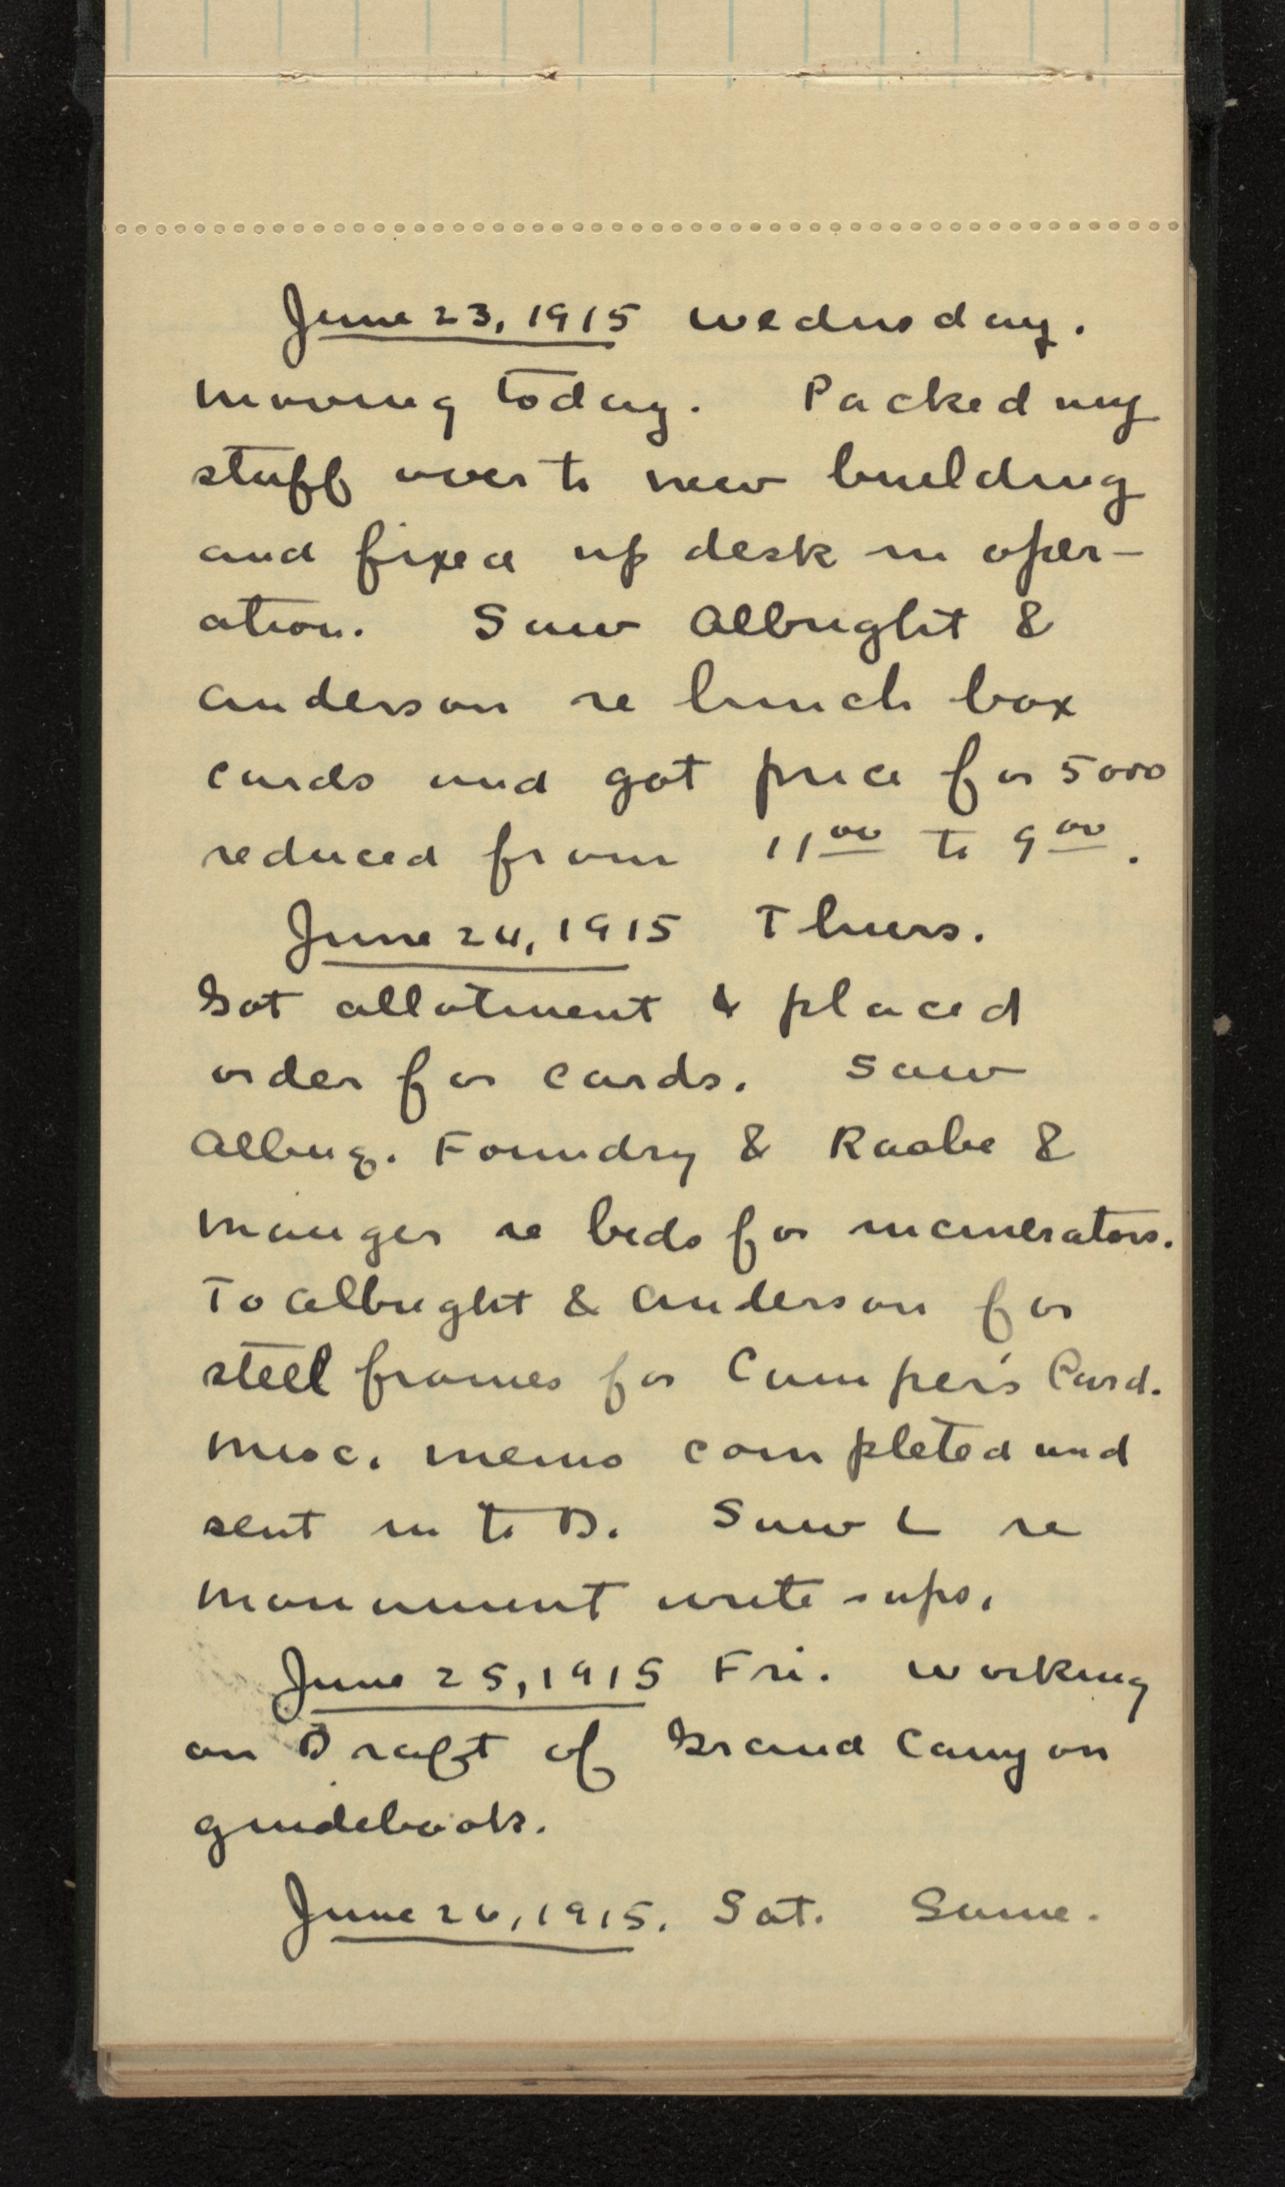 June 23, 1915 Wednesday.
Moving today. Packed my
stuff over to new building
and fixed up desk in oper-
ation. Saw Albright &
Anderson re lunch box
cards and got price for 5000
reduced from 11 00 to 9 00.
June 24, 1915 Thurs.
Got allotment & placed
order for cards. Saw
Albuq. Foundry & Raabe &
Mauger re beds for incinerators.
To Albright & Anderson for
steel frames for Camper's Card.
Misc. memo completed and
sent in to D. Saw L re
monument write-ups.
June 25, 1915 Fri. Working
on Draft of Grand Canyon
guidebook.
June 26, 1915. Sat. Same.